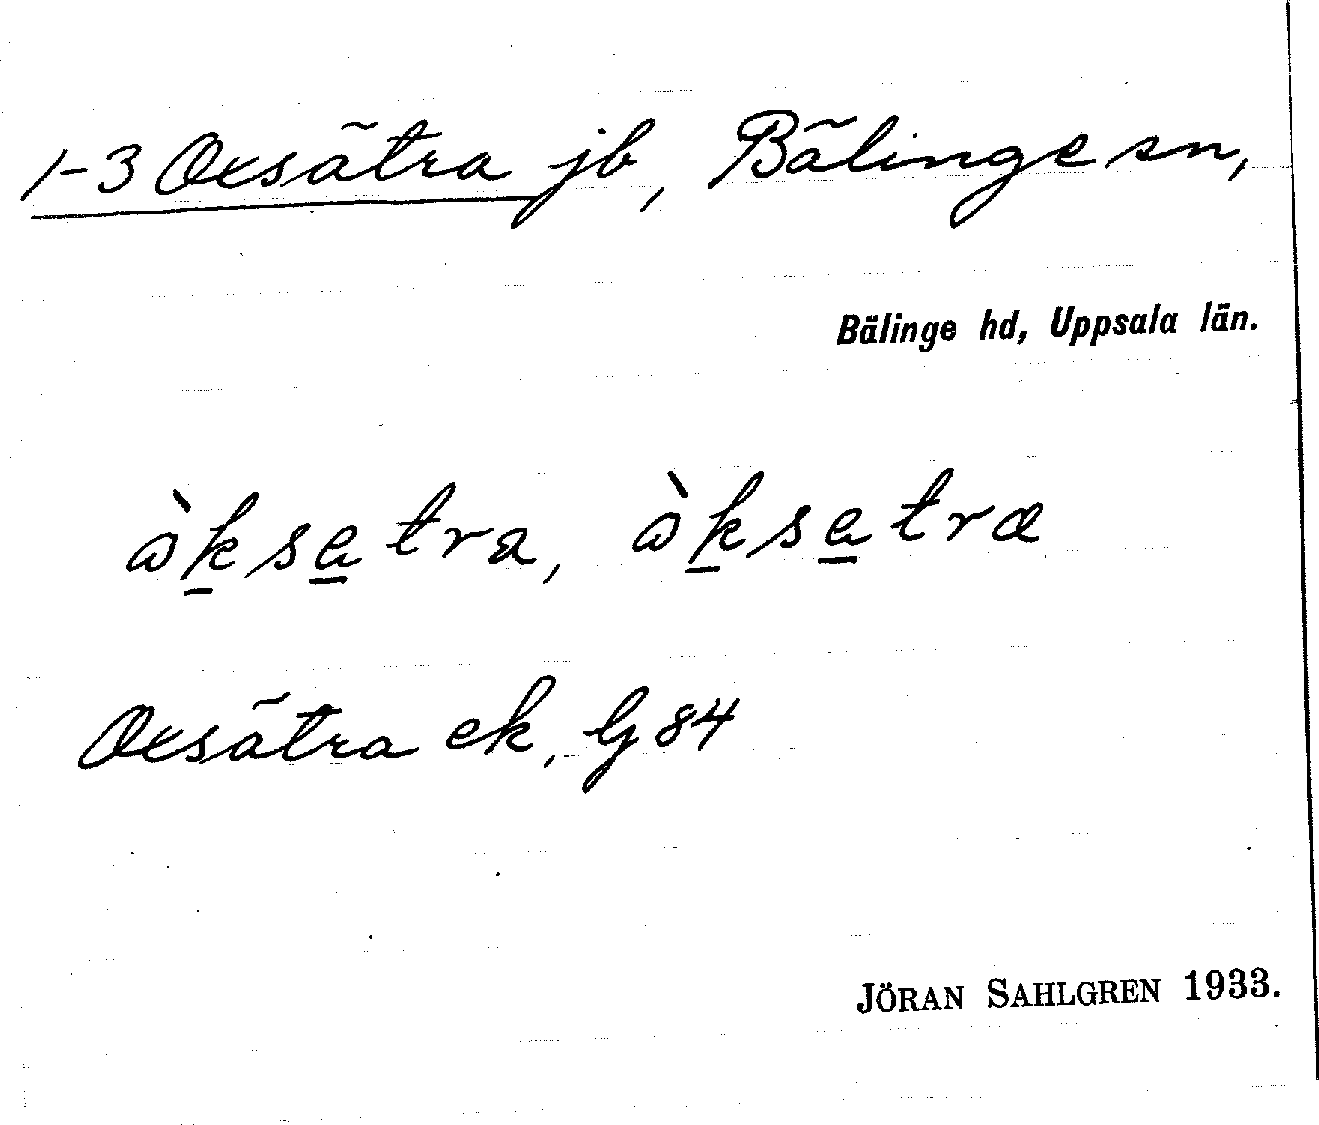 1-3 Oxsätra jb, Bälinge sn,
Bälinge hd, Uppsala län.
òksatra, òksatra
Oxsätra ek, G 84
JÖRAN SAHLGREN 1933.